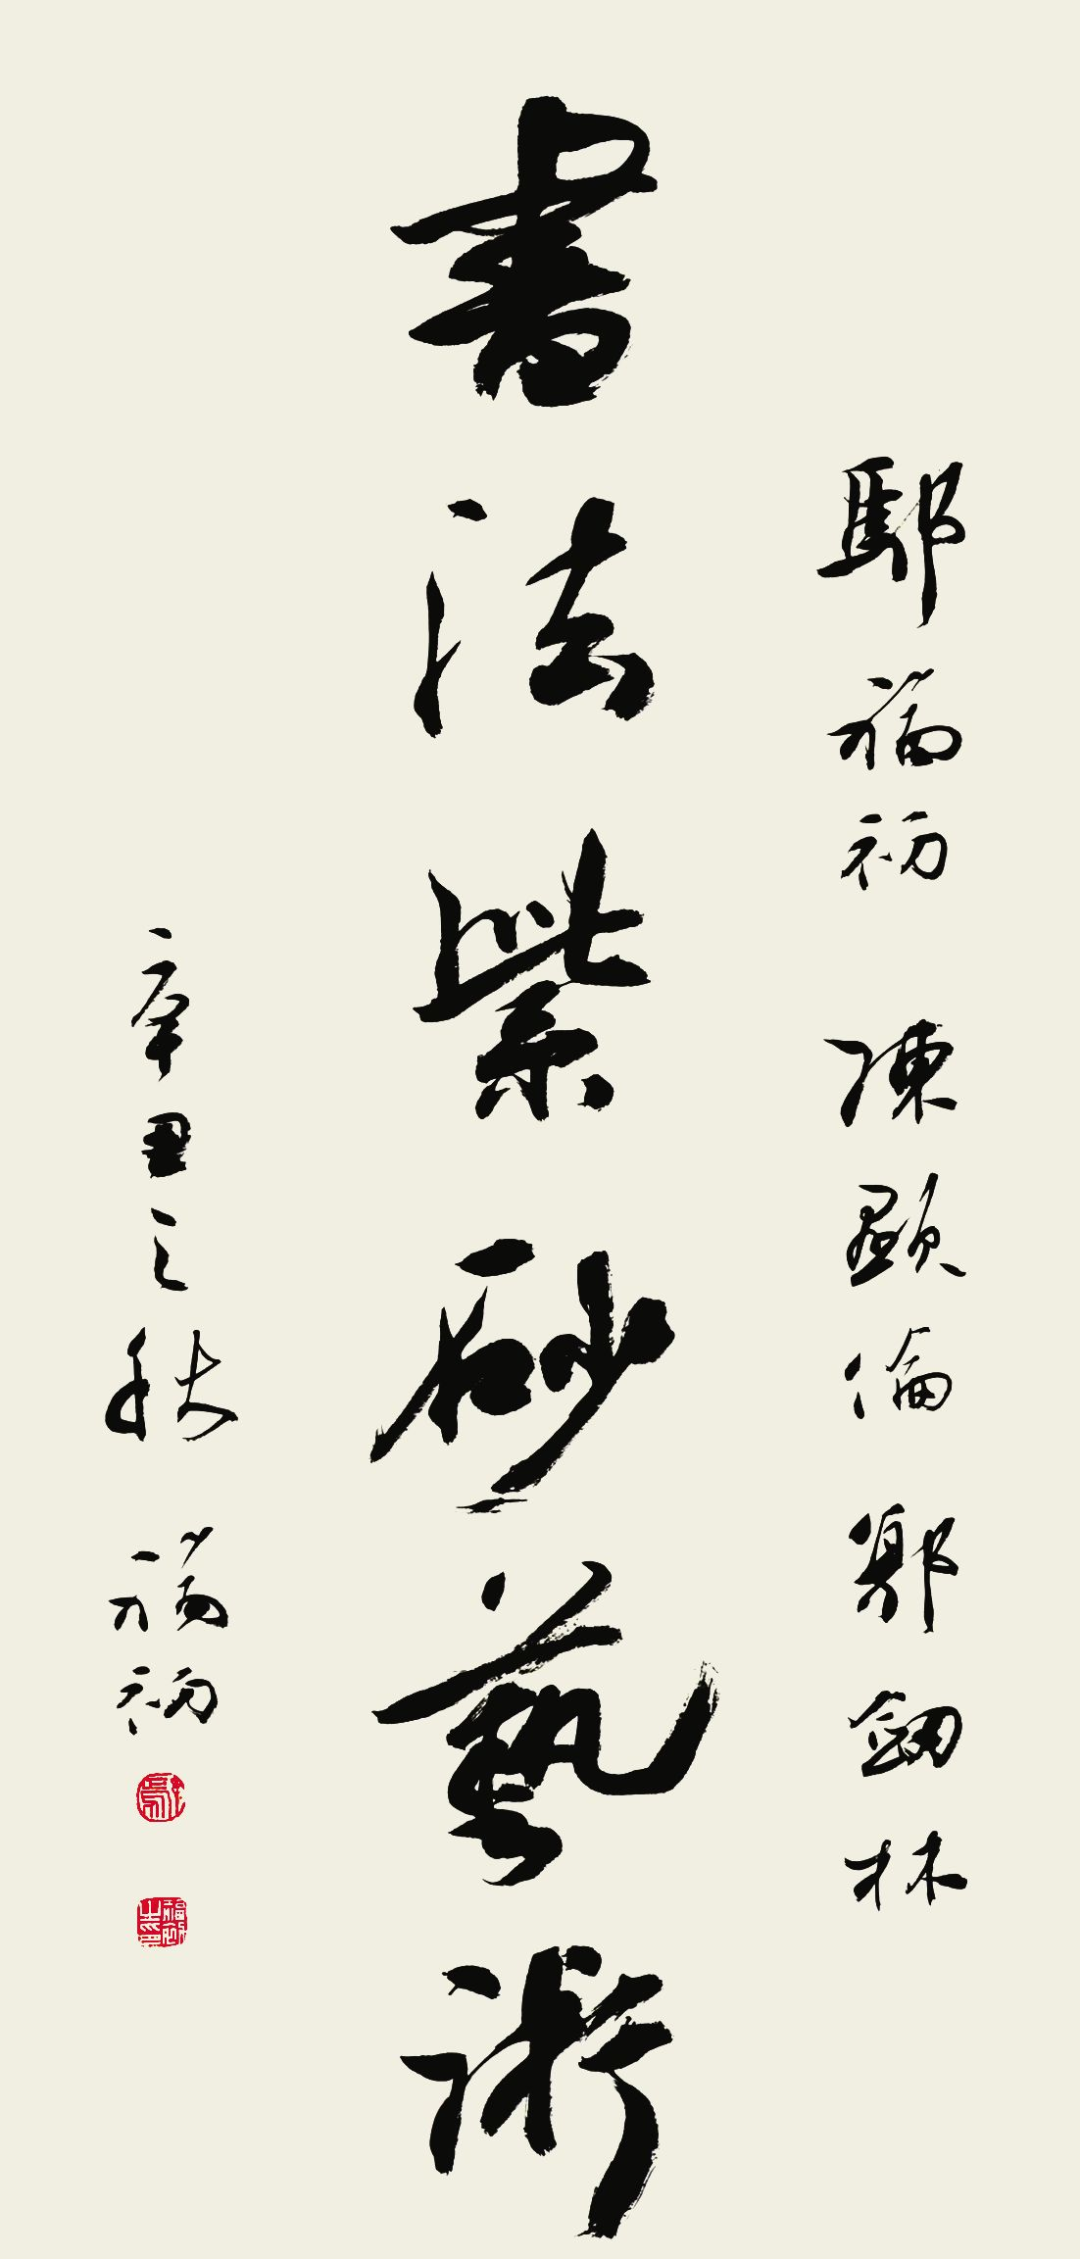 耶福初 陳顯倫 鄭劍林
書法紫砂藝術
辛丑之秋 福初